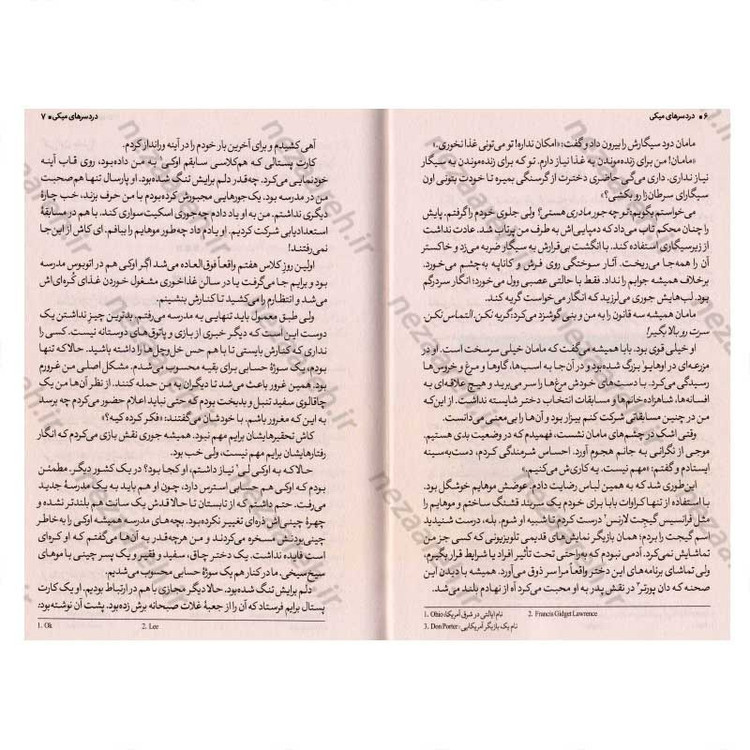 ۶ ● دردسرهای میکی
مامان دود سیگارش را بیرون داد و گفت: «امکان نداره! تو می‌تونی غذا نخوری.»
«مامان! من برای زنده‌موندن به غذا نیاز دارم. تو که برای زنده‌موندن به سیگار
نیاز نداری. داری می‌گی حاضری دخترت از گرسنگی بمیره تا خودت بتونی اون
سیگارای سرطان‌زا رو بکشی؟»
می‌خواستم بگویم تو چه جور مادری هستی؟ ولی جلوی خودم را گرفتم. پایش
را چنان محکم تاب می‌داد که دمپایی‌اش به طرف من پرتاب شد. عادت نداشت
از زیرسیگاری استفاده کند. با انگشت بی‌قرارش به سیگار ضربه می‌زد و خاکستر
آن را همه‌جا می‌ریخت. آثار سوختگی روی فرش و کاناپه به‌چشم می‌خورد.
برخلاف همیشه جوابم را نداد. فقط با حالتی عصبی وول می‌خورد؛ انگار سردرگم
بود. لب‌هایش جوری می‌لرزید که انگار می‌خواست گریه کند.
مامان همیشه سه قانون را به من و بنی گوشزد می‌کرد: گریه نکن. التماس نکن.
سرت رو بالا بگیر!
او خیلی قوی بود. بابا همیشه می‌گفت که مامان خیلی سرسخت است. او در
مزرعه‌ای در اوهایو۱ بزرگ شده‌بود و در آن‌جا به اسب‌ها، گاوها و مرغ و خروس‌ها
رسیدگی می‌کرد. با دست‌های خودش مرغ‌ها را سر می‌برید و هیچ علاقه‌ای به
افسانه‌ها، شاهزاده‌خانم‌ها و مسابقات انتخاب دختر شایسته نداشت. از این‌که
من در چنین مسابقاتی شرکت کنم بیزار بود و آن‌ها را بی‌معنی می‌دانست.
وقتی اشک در چشم‌های مامان نشست، فهمیدم که در وضعیت بدی هستیم.
موجی از نگرانی به جانم هجوم آورد. احساس شرمندگی کردم، دست‌به‌سینه
ایستادم و گفتم: «مهم نیست. یه کاری‌ش می‌کنیم.»
این‌طوری شد که به همین لباس رضایت دادم. عوضش موهایم خوشگل بود.
با استفاده از تنها کراوات بابا برای خودم یک سربند قشنگ ساختم و موهایم را
مثل فرانسیس گیجت لارنس۲ درست کردم تا شبیه او شوم. بله، درست شنیدید
اسم گیجت را بردم؛ همان بازیگر نمایش‌های قدیمی تلویزیونی که کسی جز من
تماشایش نمی‌کرد. آدمی نبودم که به‌راحتی تحت تأثیر افراد یا شرایط قرار بگیرم،
ولی تماشای برنامه‌های این دختر واقعاً مرا سر ذوق می‌آورد. همیشه با دیدن این
صحنه که دان پورتر۳ در نقش پدر به او محبت می‌کرد آه از نهادم بلند می‌شد.
1. Ohio: نام ایالتی در شرق آمریکا 2. Francis Gidget Lawrence
3. Don Porter: نام یک بازیگر آمریکایی
دردسرهای میکی ● ۷
آهی کشیدم و برای آخرین بار خودم را در آینه ورانداز کردم.
کارت پستالی که هم‌کلاسی سابقم اوکی۱ به من داده‌بود، روی قاب آینه
خودنمایی می‌کرد. چه‌قدر دلم برایش تنگ شده‌بود. او پارسال تنها هم‌صحبت
من در مدرسه بود. یک‌جورهایی مجبورش کرده‌بودم با من حرف بزند، خب چارهٔ
دیگری نداشتم. من به او یاد دادم چه‌جوری اسکیت‌سواری کند. با هم در مسابقهٔ
استعدادیابی شرکت کردیم. او یادم داد چه‌طور موهایم را ببافم. ای کاش از این‌جا
نمی‌رفتند!
اولین روز کلاس هفتم واقعاً فوق‌العاده می‌شد اگر اوکی هم در اتوبوس مدرسه
بود و برایم جا می‌گرفت یا در سالن غذاخوری مشغول خوردن غذای کره‌ای‌اش
می‌شد و انتظارم را می‌کشید تا کنارش بنشینم.
ولی طبق معمول باید تنهایی به مدرسه می‌رفتم. بدترین چیزِ نداشتن یک
دوست این است که دیگر خبری از بازی و پاتوق‌های دوستانه نیست. کسی را
نداری که کنارش بایستی تا با هم حس خل‌وچل‌ها را داشته باشید. حالا که تنها
بودم، یک سوژهٔ حسابی برای بقیه محسوب می‌شدم. مشکل اصلی من غرورم
بود. همین غرور باعث می‌شد تا دیگران به من حمله کنند. از نظر آن‌ها من یک
چاقالوی سفید تنبل و بدبخت بودم که حتی نباید اعلام حضور می‌کردم چه برسد
به این که مغرور باشم. با خودشان می‌گفتند: «فکر کرده کیه؟»
کاش تحقیرهایشان برایم مهم نبود. همیشه جوری نقش بازی می‌کردم که انگار
رفتارهایشان برایم مهم نیست، ولی خب بود.
حالا که به اوکی لی۲ نیاز داشتم، او کجا بود؟ در یک کشور دیگر. مطمئن
بودم که اوکی هم حسابی استرس دارد، چون او هم باید به یک مدرسهٔ جدید
می‌رفت. حتم داشتم که از تابستان تا حالا قدش یک سانت هم بلندتر نشده و
چهرهٔ چینی‌اش ذره‌ای تغییر نکرده‌بود. بچه‌های مدرسه همیشه اوکی را به‌خاطر
چینی‌بودنش مسخره می‌کردند و من هرچه‌قدر به آن‌ها می‌گفتم که او کره‌ای
است فایده نداشت. یک دختر چاق، سفید و فقیر و یک پسر چینی با موهای
سیخ‌سیخی. ما در کنار هم یک سوژهٔ حسابی محسوب می‌شدیم.
دلم برایش تنگ شده‌بود. حالا دیگر مجازی با هم در ارتباط بودیم. او یک کارت
پستال برایم فرستاد که آن را از جعبهٔ غلات صبحانه برش زده‌بود. پشت آن نوشته‌بود:
1. Ok 2. Lee
nezaareh.ir